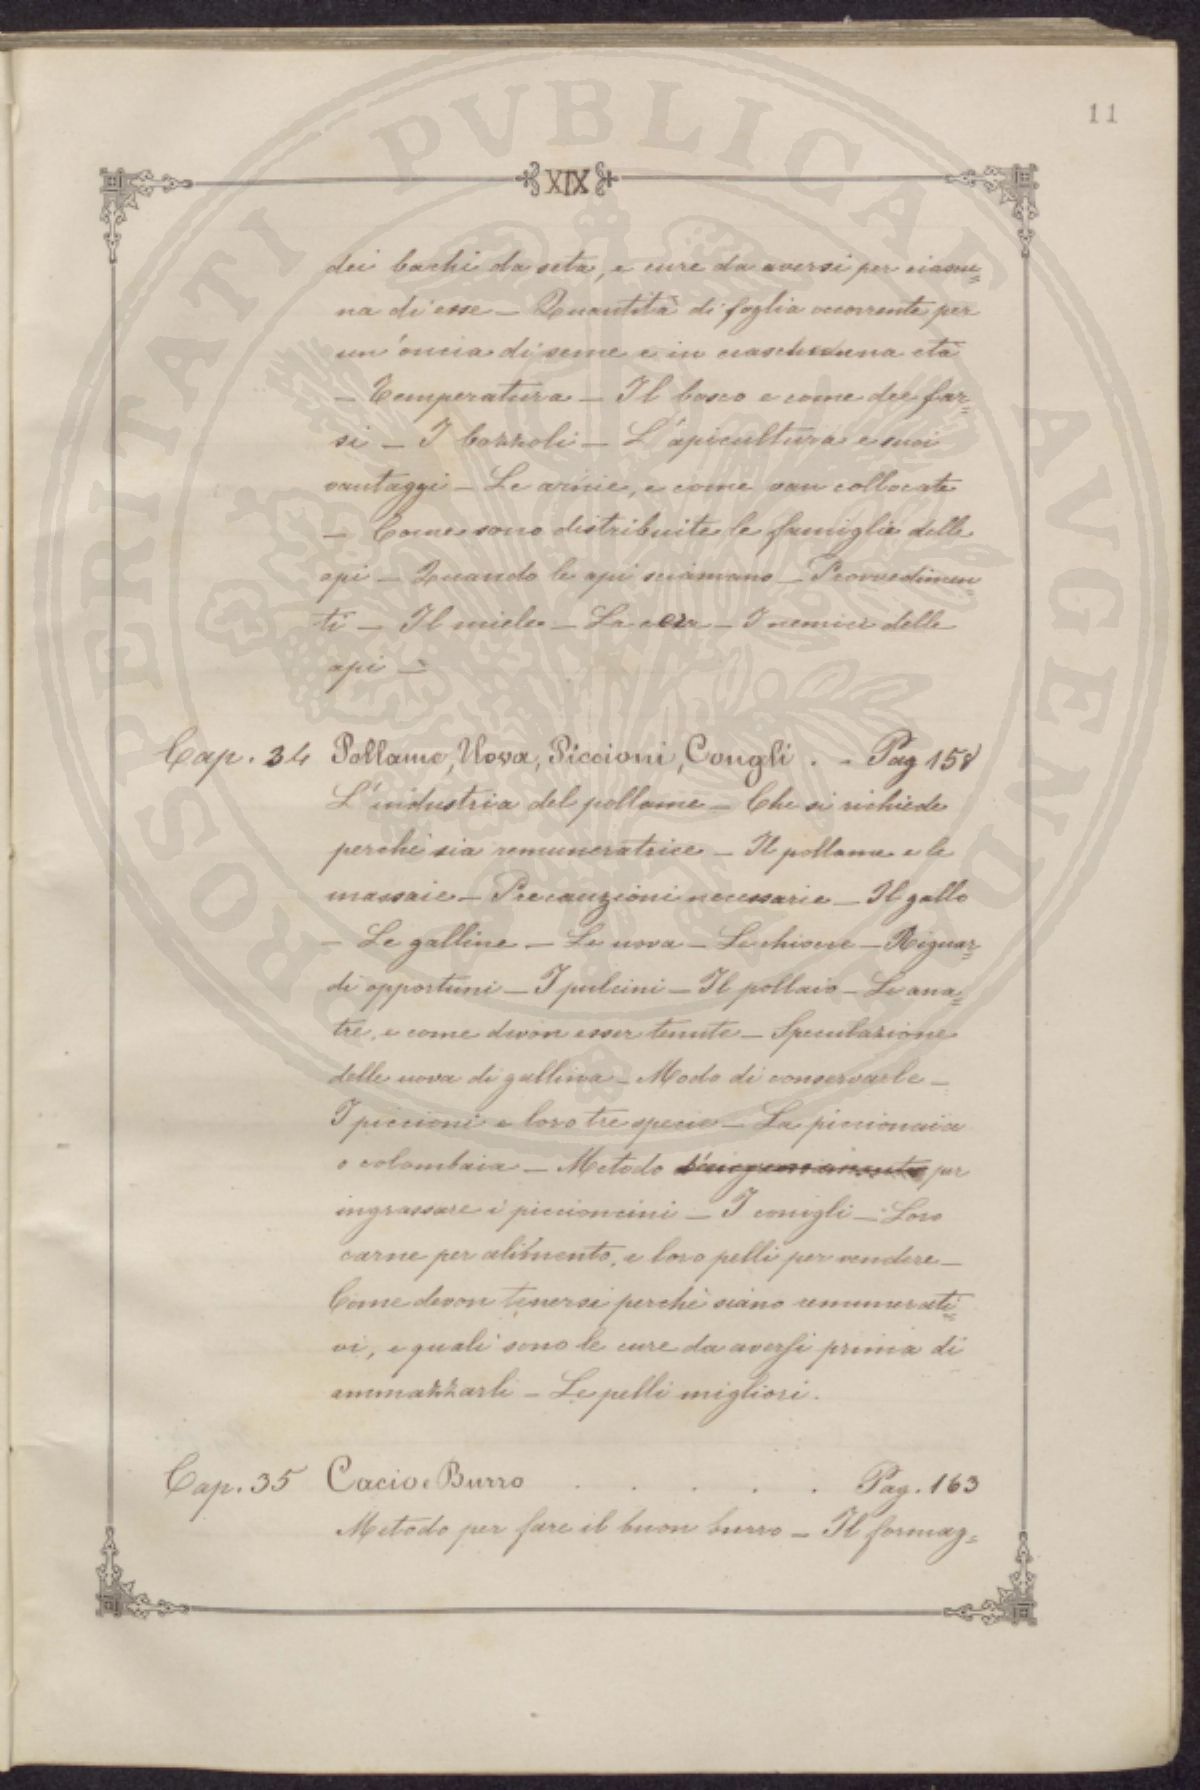 11
XIX
dei bachi da seta, e cure da aversi per ciascu=
na di esse — Quantità di foglia occorrente per
un'oncia di seme e in ciascheduna età
— Temperatura — Il bosco e come dee far=
si — I bozzoli — L'apicultura e suoi
vantaggi — Le arnie, e come van collocate
— Come sono distribuite le famiglie delle
api — Quando le api sciamano — Provvedimen=
ti — Il miele — La cera — I nemici delle
api —
Cap. 34 Pollame, Uova, Piccioni, Congli . . Pag 158
L'industria del pollame — Che si richiede
perché sia remuneratrice — Il pollame e le
massaie — Precauzioni necessarie — Il gallo
— Le galline — Le uova — Le chiocce — Riguar=
di opportuni — I pulcini — Il pollaio — Le ana=
tre, e come devon esser tenute — Speculazione
delle uova di gallina — Modo di conservarle —
I piccioni e loro tre specie — La piccionaia
o colombaia — Metodo per
ingrassare i piccioncini — I conigli — Loro
carne per alimento, e loro pelli per vendere —
Come devon tenersi perchè siano remunerati=
vi, e quali sono le cure da aversi prima di
ammazzarli — Le pelli migliori.
Cap. 35 Cacio e Burro . . . . . Pag. 163
Metodo per fare il buon burro — Il formag=
PROSPERITATI PVBLICAE AVGENDAE